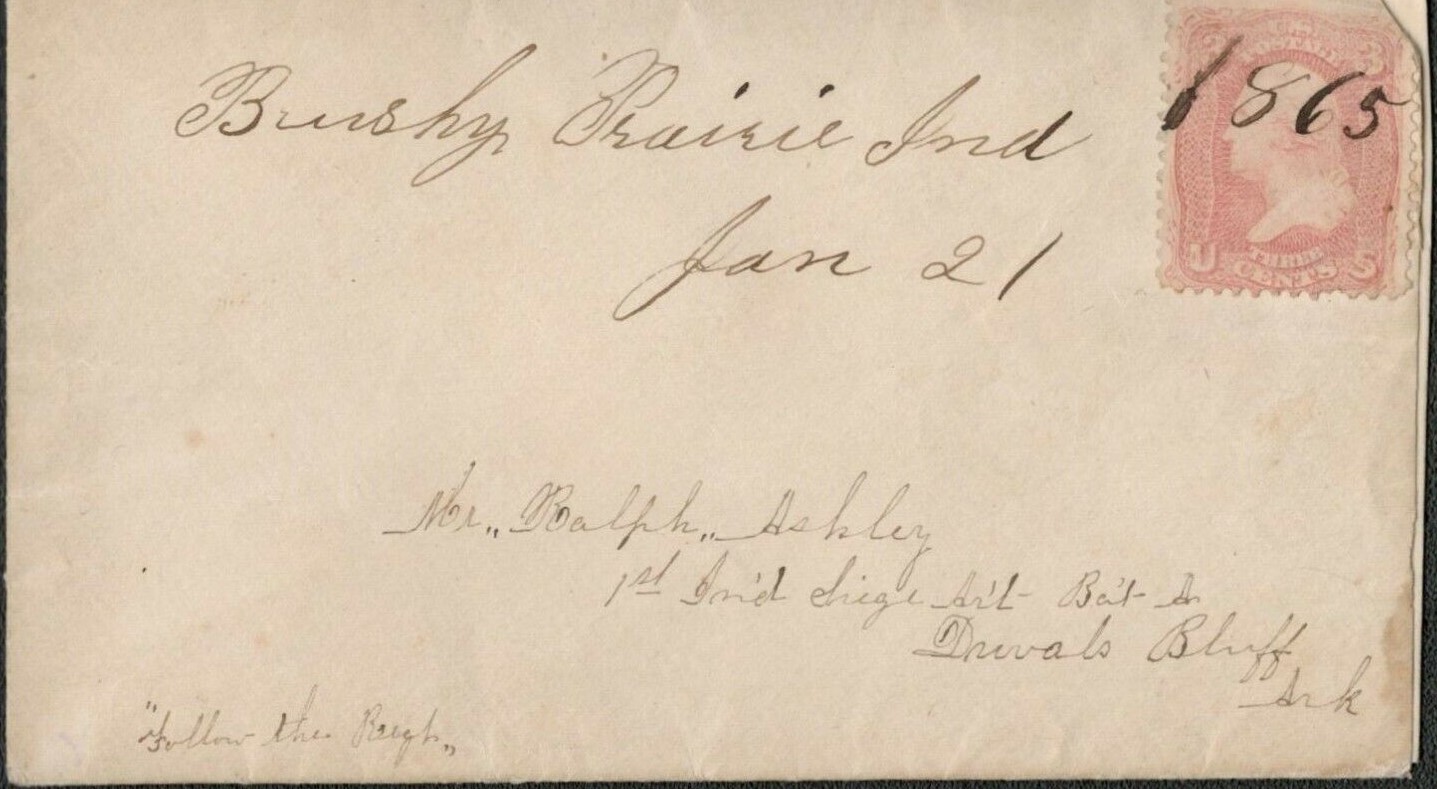 Brushy Prairie Ind
1865
Jan 21
U THREE CENTS S
Mr,, Ralph,, Ashley
1st Ind Siege Art Bat A
Duvals Bluff
Ark
"Follow the Regt,,